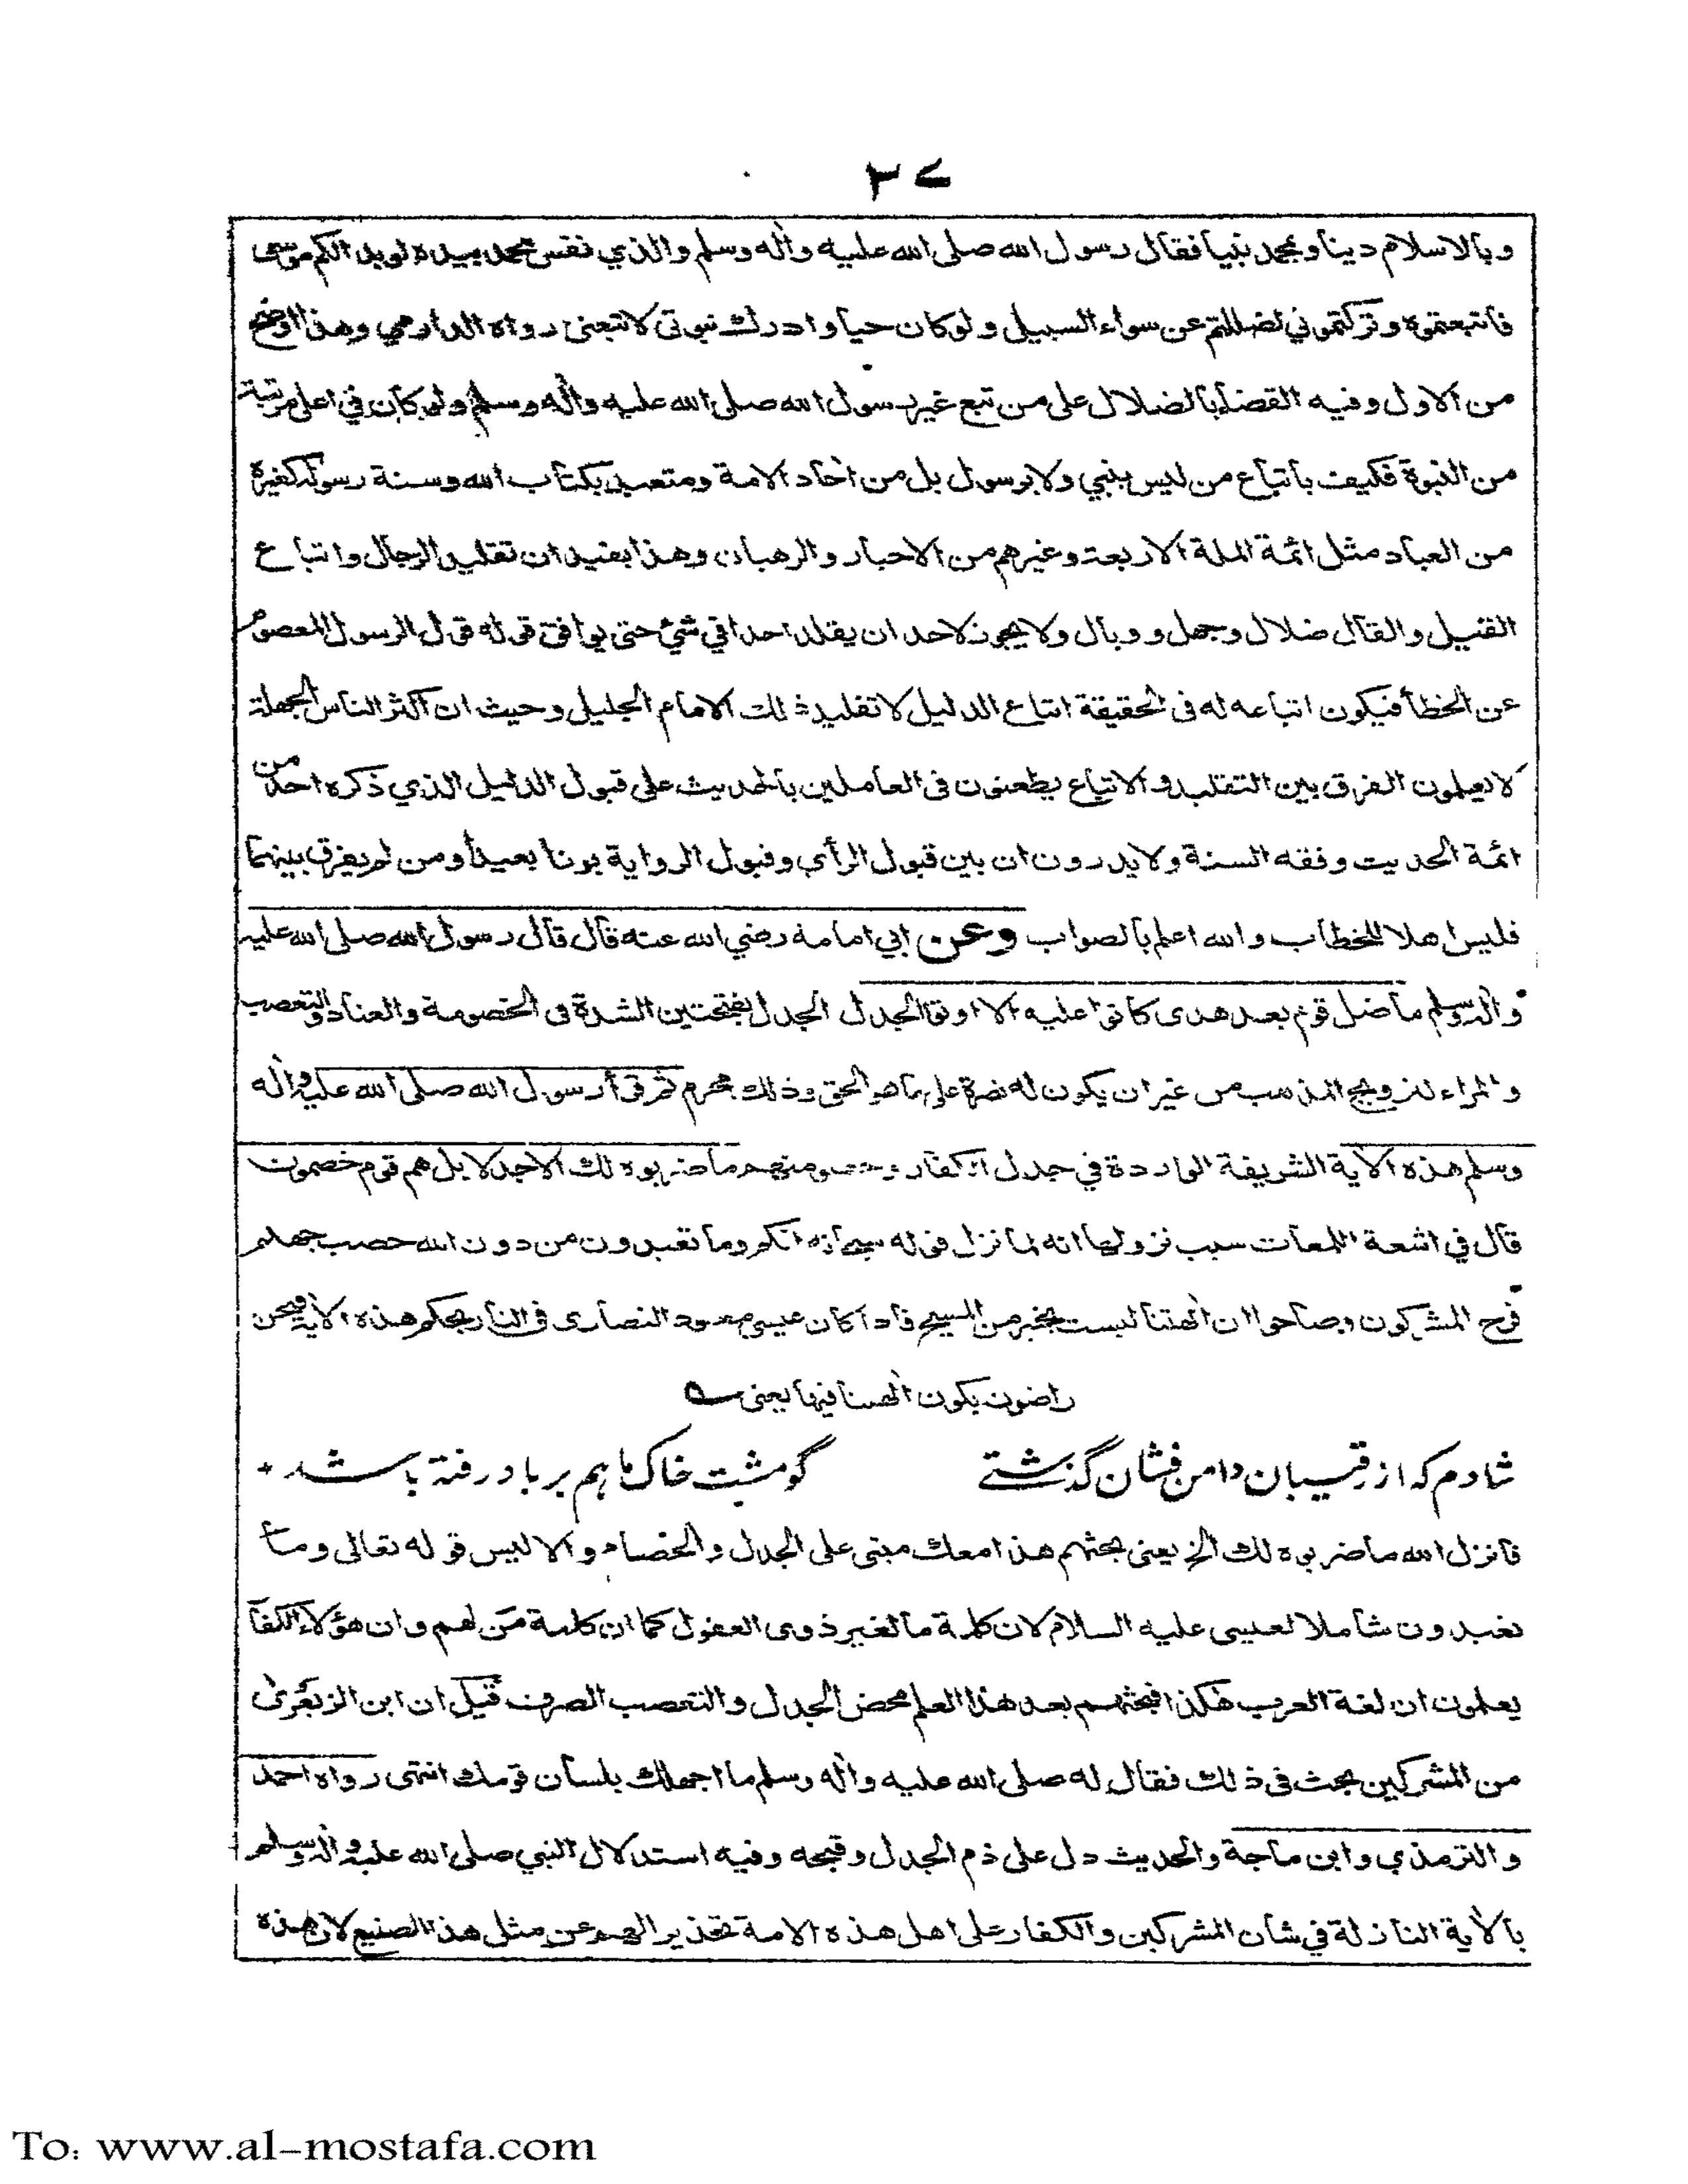 ٣٧
وبالاسلام دينا وبمحمد نبيا فقال رسول الله صلى الله عليه واله وسلم والذي نفس محمد بيده لو بدا لكم موسى
فاتبعتموه وتركتموني لضللتم عن سواء السبيل ولو كان حيا وادرك نبوتي لاتبعني رواه الدارمي وهذا اوضح
من الاول وفيه القضاء بالضلال على من تبع غير رسول الله صلى الله عليه واله وسلم ولو كان في اعلى مرتبة
من النبوة فكيف باتباع من ليس بنبي ولا برسول بل من احاد الامة ومتعبد بكتاب الله وسنة رسوله كغيره
من العباد مثل ائمة الملة الاربعة وغيرهم من الاحبار والرهبان وهذا يفيد ان تقليد الرجال واتباع
القيل والقال ضلال وجهل ووبال ولا يجوز لاحد ان يقلد احدا في شئ حتى يوافق قوله قول الرسول المعصوم
عن الخطأ فيكون اتباعه له في الحقيقة اتباع الدليل لا تقليد ذلك الامام الجليل وحيث ان اكثر الناس الجهلة
لا يعلمون الفرق بين التقليد والاتباع يطعنون في العاملين بالحديث على قبول الدليل الذي ذكره احد من
ائمة الحديث وفقه السنة ولا يدرون ان بين قبول الرأي وقبول الرواية بونا بعيدا ومن لم يفرق بينهما
فليس اهلا للخطاب والله اعلم بالصواب وعن ابي امامة رضي الله عنه قال قال رسول الله صلى الله عليه
واله وسلم ما ضل قوم بعد هدى كانوا عليه الا اوتوا الجدل الجدل بفتحتين الشدة في الخصومة والعناد والتعصب
والمراء لترويج المذهب من غير ان يكون له نصرة على ما هو الحق وذلك محرم ثم قرأ رسول الله صلى الله عليه واله
وسلم هذه الاية الشريفة الواردة في جدل الكفار ما ضربوه لك الا جدلا بل هم قوم خصمون
قال في اشعة اللمعات سبب نزولها انه لما نزل قوله سبحانه انكم وما تعبدون من دون الله حصب جهنم
فرح المشركون وصاحوا ان الهتنا ليست بخير من المسيح فاذا كان عيسى معبود النصارى في النار بحكم هذه الاية فنحن
راضون بكون الهتنا فيها يعني
شادم که از رقیبان دامن فشان گذشتے گو مشت خاک ما هم برباد رفتة باشد
فانزل الله ما ضربوه لك الخ يعني بحثهم هذا معك مبني على الجدل والخصام والا ليس قوله تعالى وما
تعبدون شاملا لعيسى عليه السلام لان كلمة ما لغير ذوى العقول كما ان كلمة من لهم وان هؤلاء الكفار
يعلمون ان لغة العرب هكذا فبحثهم بعد هذا العلم محض الجدل والتعصب الصرف قيل ان ابن الزبعرى
من المشركين بحث في ذلك فقال له صلى الله عليه واله وسلم ما اجهلك بلسان قومك انتهى رواه احمد
والترمذي وابن ماجة والحديث دل على ذم الجدل وقبحه وفيه استدلال النبي صلى الله عليه واله وسلم
بالاية النازلة في شان المشركين والكفار على اهل هذه الامة تحذيرا لهم عن مثل هذا الصنيع لان هذه
To: www.al-mostafa.com